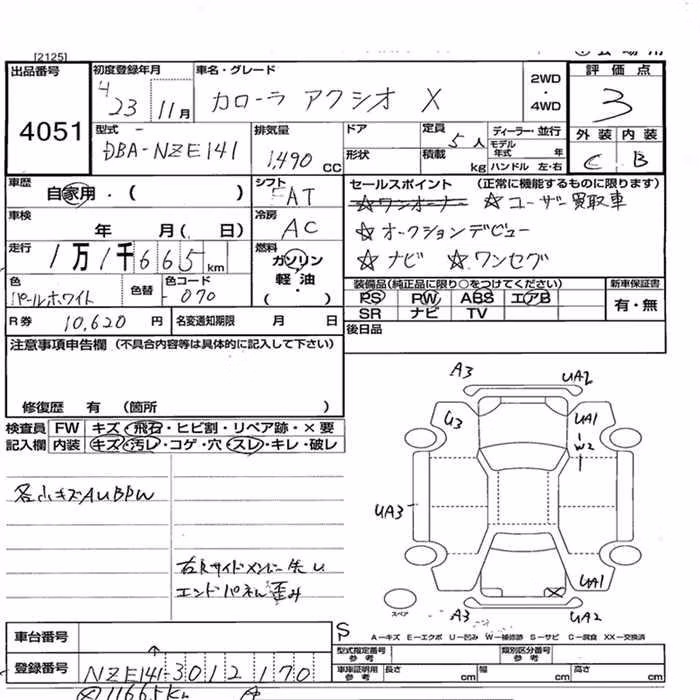 [2125]
出品番号
4051
初度登録年月
4 23 11月
車名・グレード
カローラ アクシオ X
2WD
・
4WD
評価点
3
外装 内装
C B
型式
DBA-NZE141
排気量
1,490 CC
ドア
形状
定員 5人
積載 kg
ディーラー・並行
モデル年式 年
ハンドル 左・右
車歴
自家用・( )
シフト
FAT
車検
年 月( 日)
冷房
AC
走行
1万1千665km
燃料
ガソリン
軽油
・( )
色
パールホワイト
色替
色コード
-070
セールスポイント (正常に機能するものに限ります)
☆ワンオーナー ☆ユーザー買取車
☆オークションデビュー
☆ナビ ☆ワンセグ
装備品(純正品に限り○をつけてください) 新車保証書
PS PW ABS エアB
SR ナビ TV
有・無
R券 10,620円
名変通知期限 月 日
後日品
注意事項申告欄 (不具合内容等は具体的に記入して下さい)
修復歴 有 (箇所 )
検査員 FW キズ・飛石・ヒビ割・リペア跡・×要
記入欄 内装 キズ・汚レ・コゲ・穴・スレ・キレ・破レ
各小キズAUBPW
右Rサイドメンバー先し
エンドパネル歪み
A3 UA2
U3 UA1
W2
UA3
UA1
A3 UA2
スペア
S
A-キズ E-エクボ U-凹み W-補修跡 S-サビ C-腐食 XX-交換済
車台番号
型式指定番号
参考
類別区分番号
参考
登録番号
NZE141-3012170
車体証明用
参考
長さ cm 幅 cm 高さ cm
11665Km